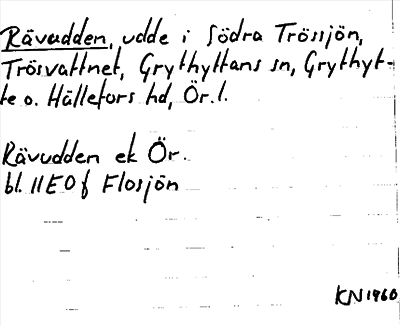 Rävudden, udde i Södra Trössjön,
Trösvattnet, Grythyttans sn, Grythyt-
te o. Hällefors hd, Ör. l.
Rävudden ek Ör.
bl. 11E0f Flosjön
KN1960